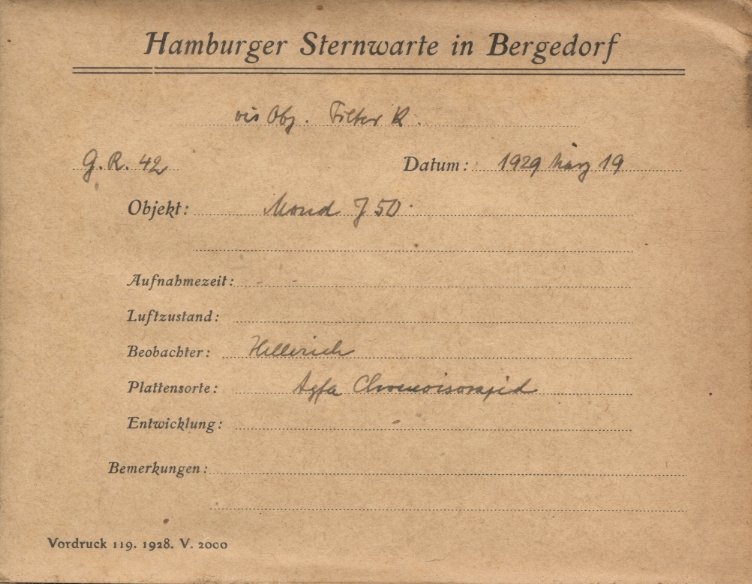 Hamburger Sternwarte in Bergedorf
vis Obj. Filter R.
G.R. 42 Datum: 1929 März 19
Objekt: Mond J 50
Aufnahmezeit:
Luftzustand:
Beobachter: Hellerich
Plattensorte: Agfa Chromoisorapid
Entwicklung:
Bemerkungen:
Vordruck 119. 1928. V. 2000